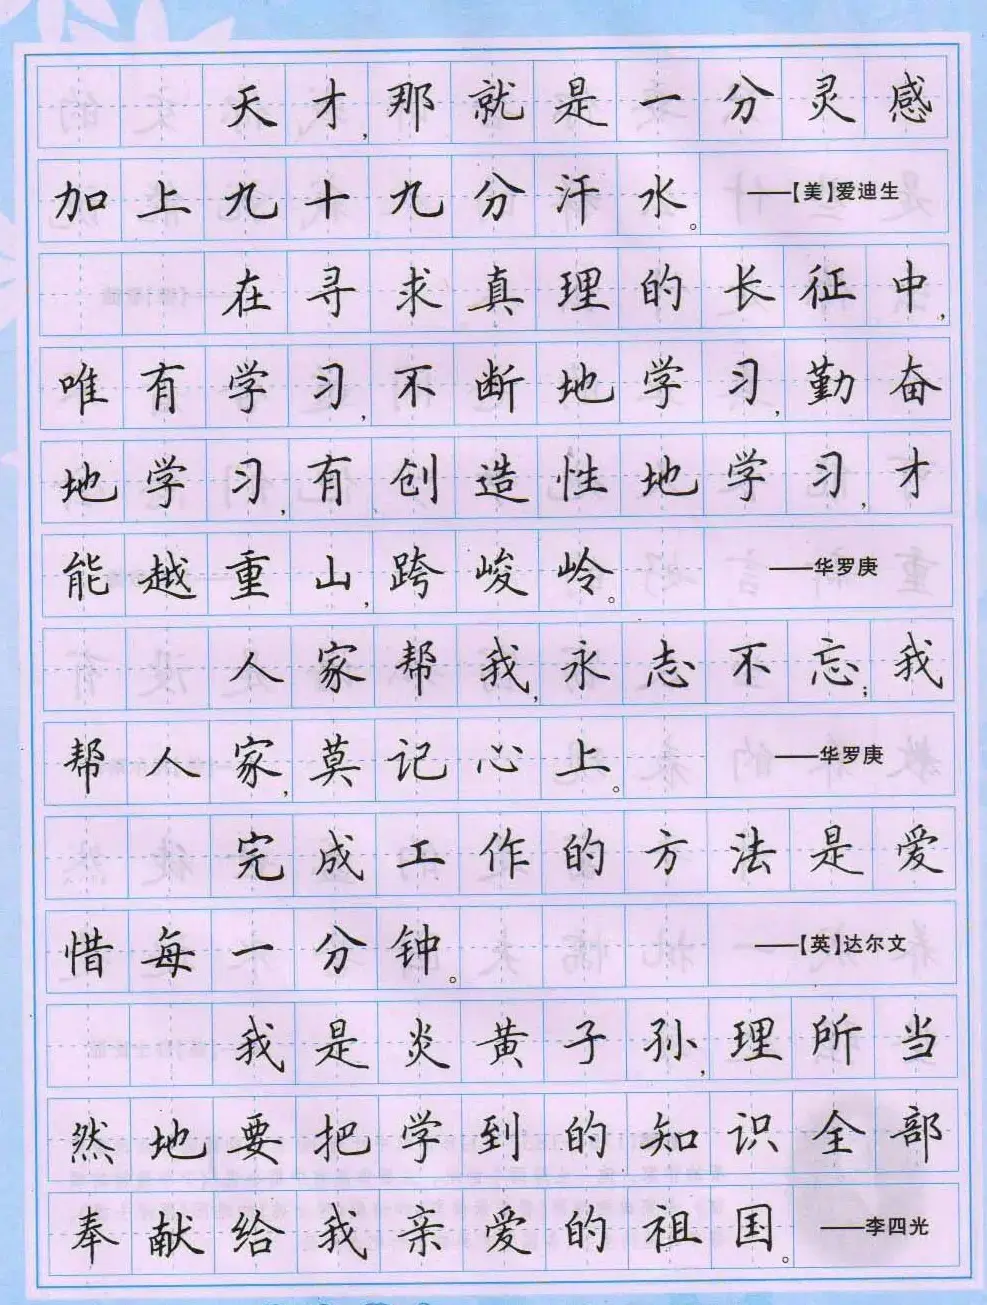 天才,那就是一分灵感
加上九十九分汗水。 ——【美】爱迪生
在寻求真理的长征中,
唯有学习,不断地学习,勤奋
地学习,有创造性地学习,才
能越重山,跨峻岭。 ——华罗庚
人家帮我,永志不忘;我
帮人家,莫记心上。 ——华罗庚
完成工作的方法是爱
惜每一分钟。 ——【英】达尔文
我是炎黄子孙,理所当
然地要把学到的知识全部
奉献给我亲爱的祖国。 ——李四光